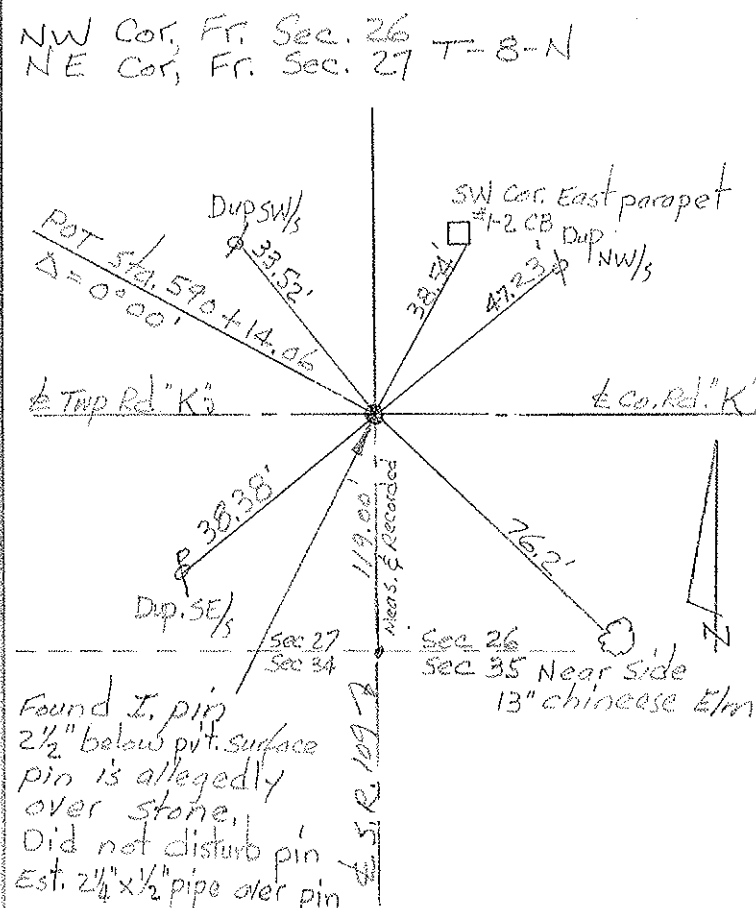 NW Cor, Fr. Sec. 26
NE Cor, Fr. Sec. 27 T-8-N
Dup SW/s
33.52'
SW Cor. East parapet
#1-2 CB
38.54'
Dup NW/s
47.23'
POT Sta. 590+14.06
Δ = 0°00'
℄ Twp Rd "K"
℄ Co. Rd. "K"
38.38'
Dup. SE/s
119.00'
Meas. & Recorded
76.2'
N
Sec 27
Sec 34
Sec 26
Sec 35
Near Side
13" chineese Elm
Found I. pin
2½" below pvt. surface
pin is allegedly
over stone,
Did not disturb pin
Est. 2¼"x½" pipe over pin
℄ S.R. 109